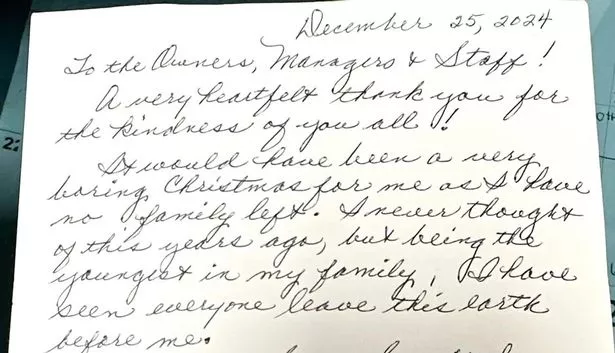 December 25, 2024
To the Owners, Managers & Staff!
A very heartfelt thank you for
the kindness of you all!
It would have been a very
boring Christmas for me as I have
no family left. I never thought
of this years ago, but being the
youngest in my family, I have
seen everyone leave this earth
before me.